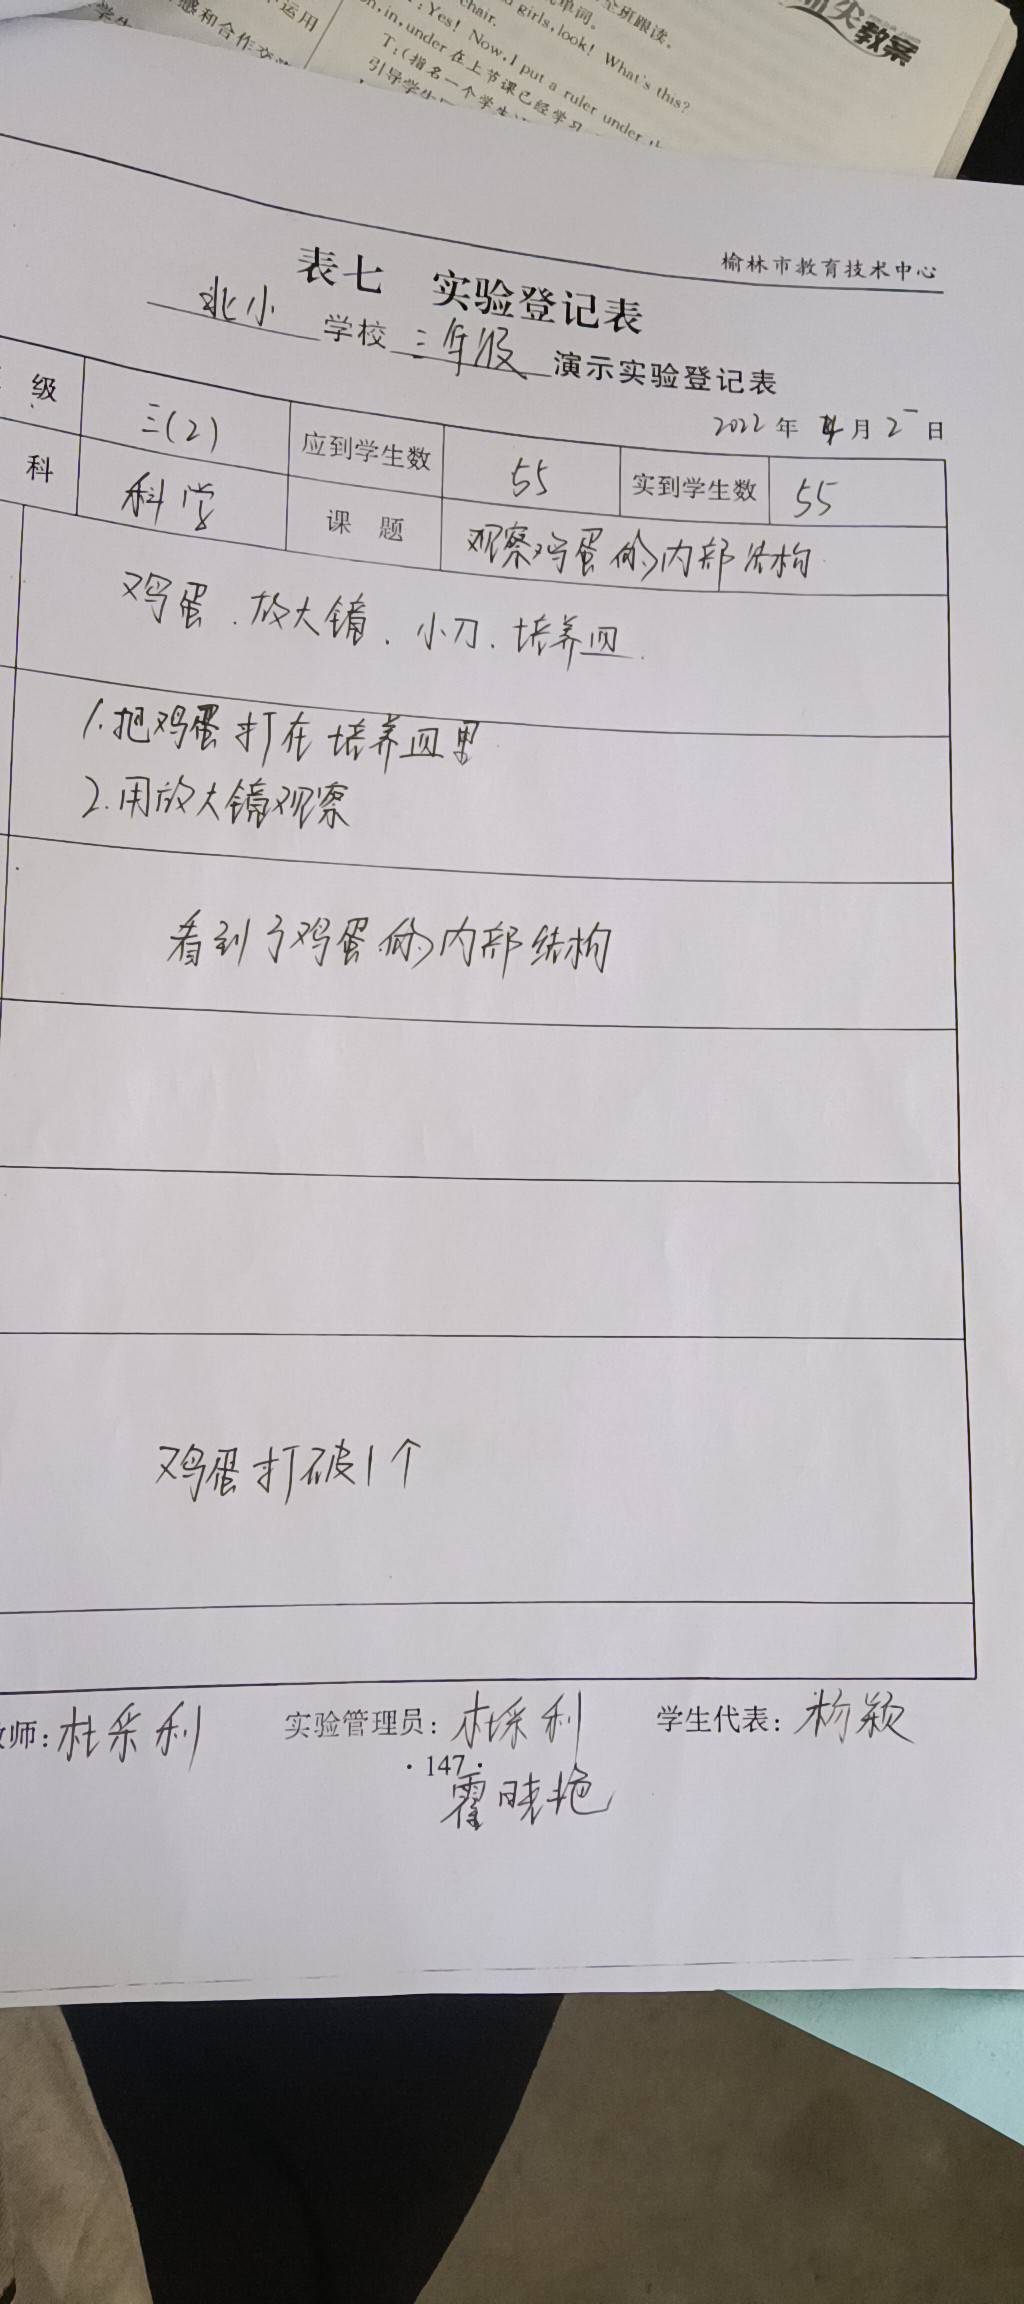 运用
感和合作交
学生
全班跟读。
单词。
girls, look! What's this?
chair.
: Yes! Now, I put a ruler under
on, in, under 在上节课已经学习
T:(指名一个学生
引导学生
教案
榆林市教育技术中心
表七 实验登记表
北小 学校 三年级 演示实验登记表
2022 年 4 月 25 日
级 三(2) 应到学生数 55 实到学生数 55
科 科学 课 题 观察鸡蛋的内部结构
鸡蛋、放大镜、小刀、培养皿
1.把鸡蛋打在培养皿里
2.用放大镜观察
看到了鸡蛋的内部结构
鸡蛋打破1个
师:杜采利 实验管理员:杜采利 学生代表:杨颖
·147·
霍晓艳